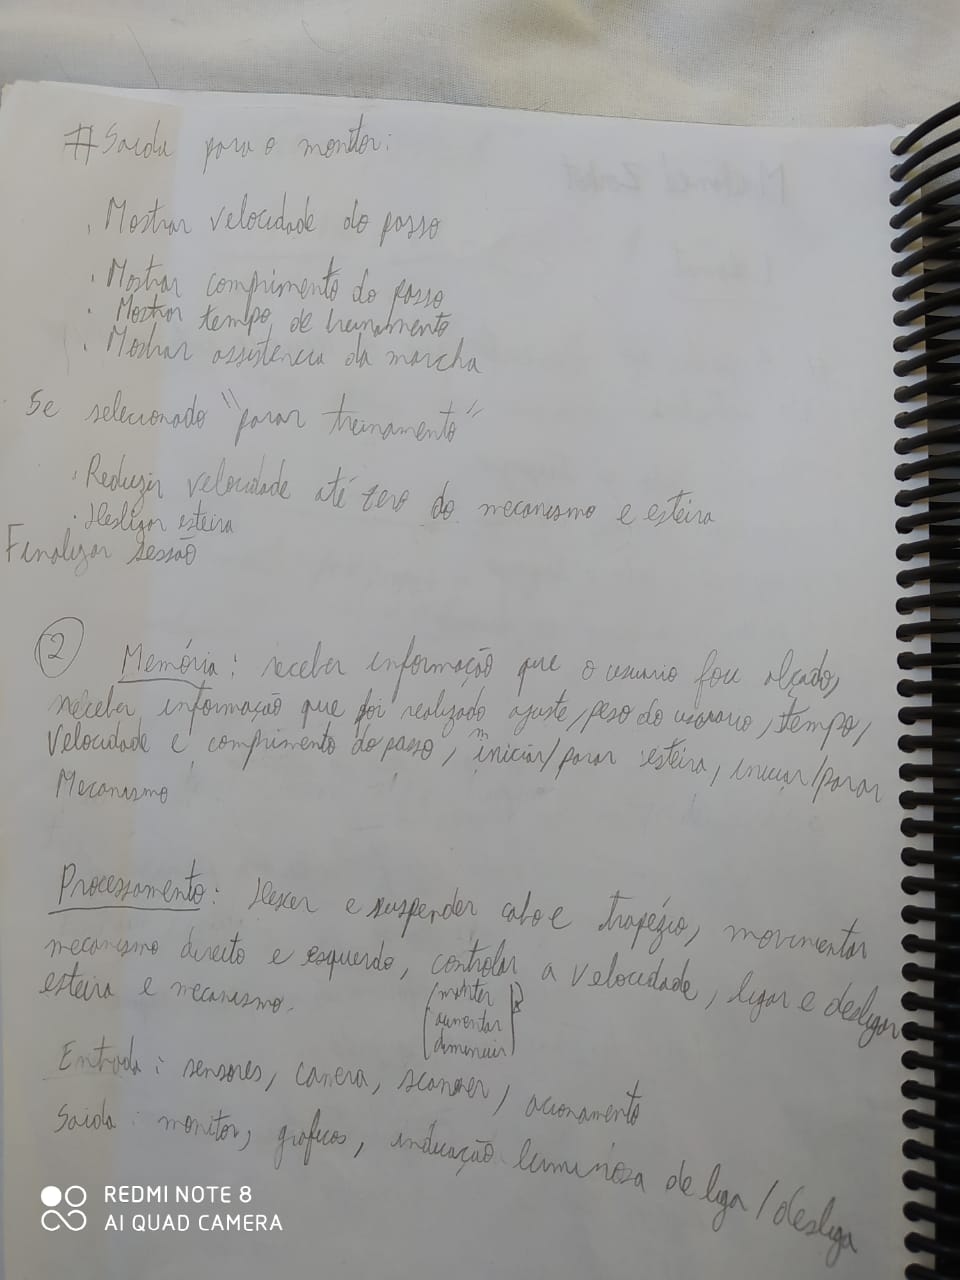 # Saida para o monitor:
. Mostrar velocidade do passo
. Mostrar comprimento do passo
. Mostrar tempo de treinamento
. Mostrar assistencia da marcha
Se selecionado "parar treinamento"
. Reduzir velocidade até zero do mecanismo e esteira
. Desligar esteira
Finalizar sessão
2 Memória: receber informação que o usuario foi alçado,
receber informação que foi realizado ajuste, peso do usuario, tempo,
velocidade e comprimento do passo, iniciar/parar esteira, iniciar/parar
Mecanismo
Processamento: Descer e suspender cabo e trapézio, movimentar
mecanismo direito e esquerdo, controlar a velocidade, ligar e desligar
esteira e mecanismo.
(manter
aumentar
diminuir)
Entrada: sensores, camera, scanner, acionamento
Saida: monitor, graficos, indicação luminosa de liga/desliga
REDMI NOTE 8
AI QUAD CAMERA